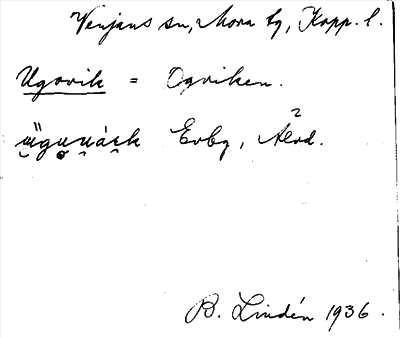 Venjans sn, Mora tg, Kopp. l.
Ugovik = Ogviken.
Evby, Älvd.
B. Lindén 1936.